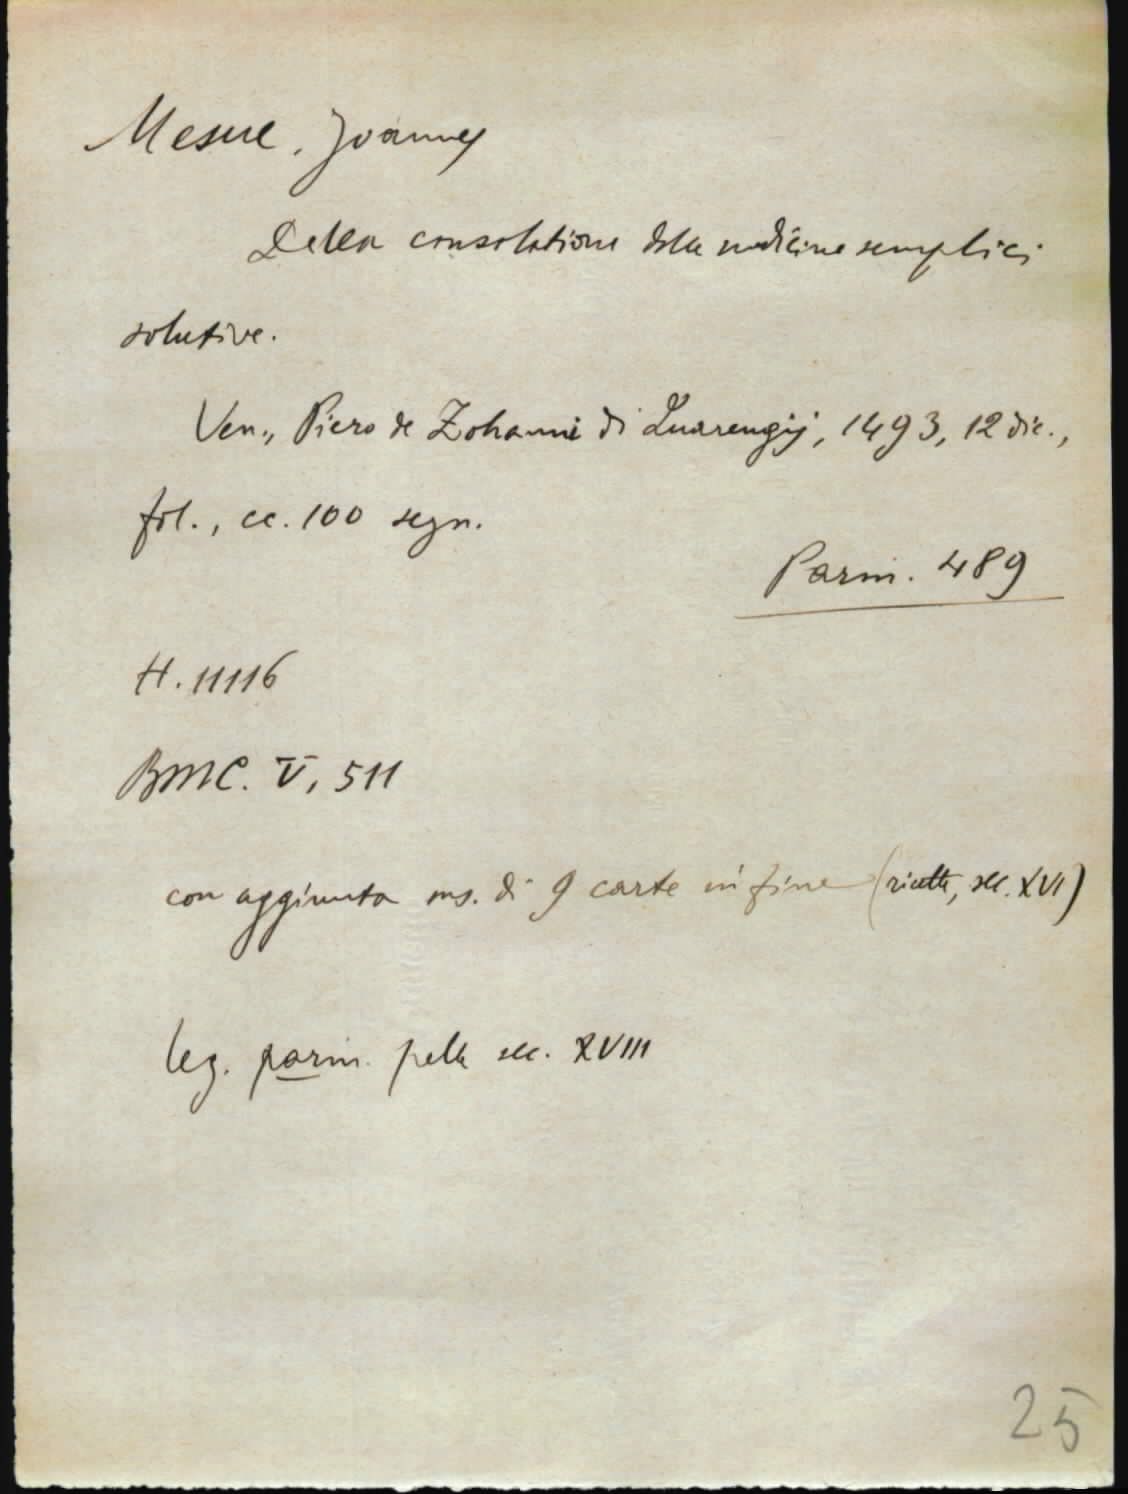 Mesue, Joannes
Della consolatione delle medicine semplici
solutive.
Ven., Piero de Zohanni di Quarengij, 1493, 12 dic.,
fol., cc. 100 segn.
Parm. 489
H. 11116
BMC. V, 511
con aggiunta ms. di 9 carte in fine (ricette, sec. XVI)
leg. parm. pelle sec. XVIII
25